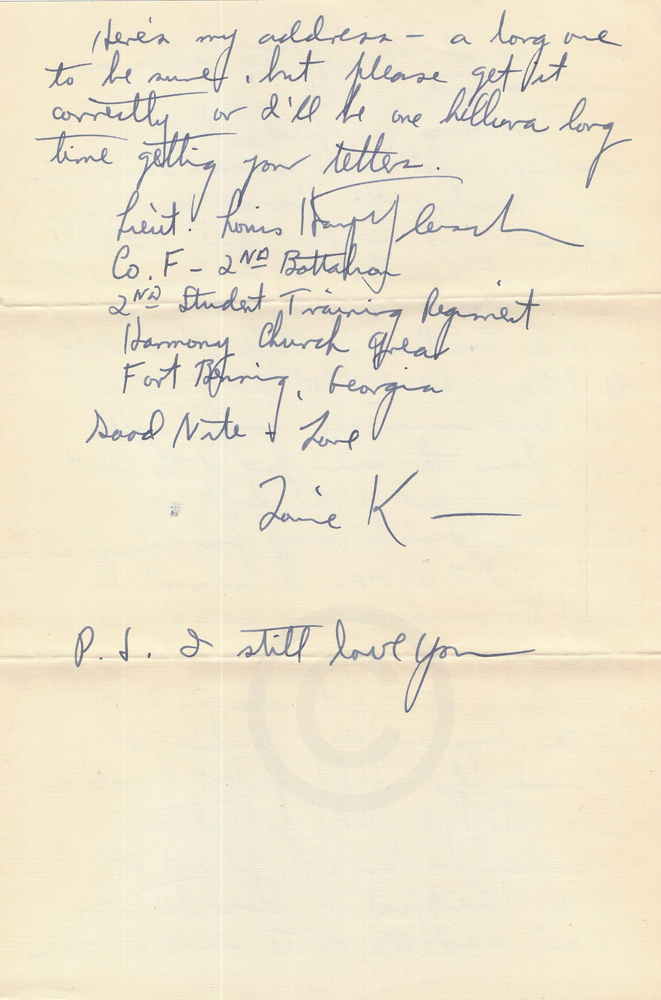 Here's my address – a long one
to be sure, but please get it
correctly or I'll be one helluva long
time getting your letters.
Lieut. Louis
Co. F – 2ND Battalion
2ND Student Training Regiment
Harmony Church Area
Fort Benning, Georgia
Good Nite + Love
K —
P.S. I still love you